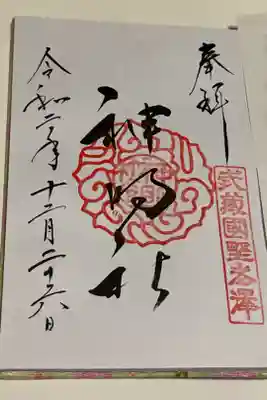 奉拝
武蔵國野老澤
神明社
令和二年十二月二十六日